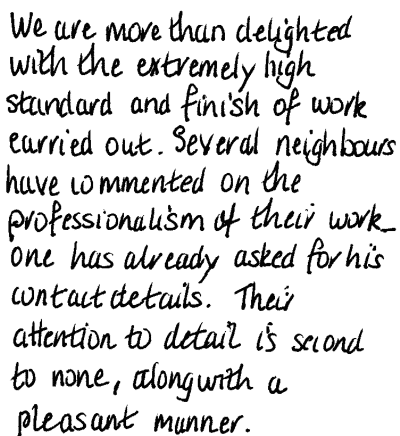 We are more than delighted
with the extremely high
standard and finish of work
carried out. Several neighbours
have commented on the
professionalism of their work_
one has already asked for his
contact details. Their
attention to detail is second
to none, along with a
pleasant manner.